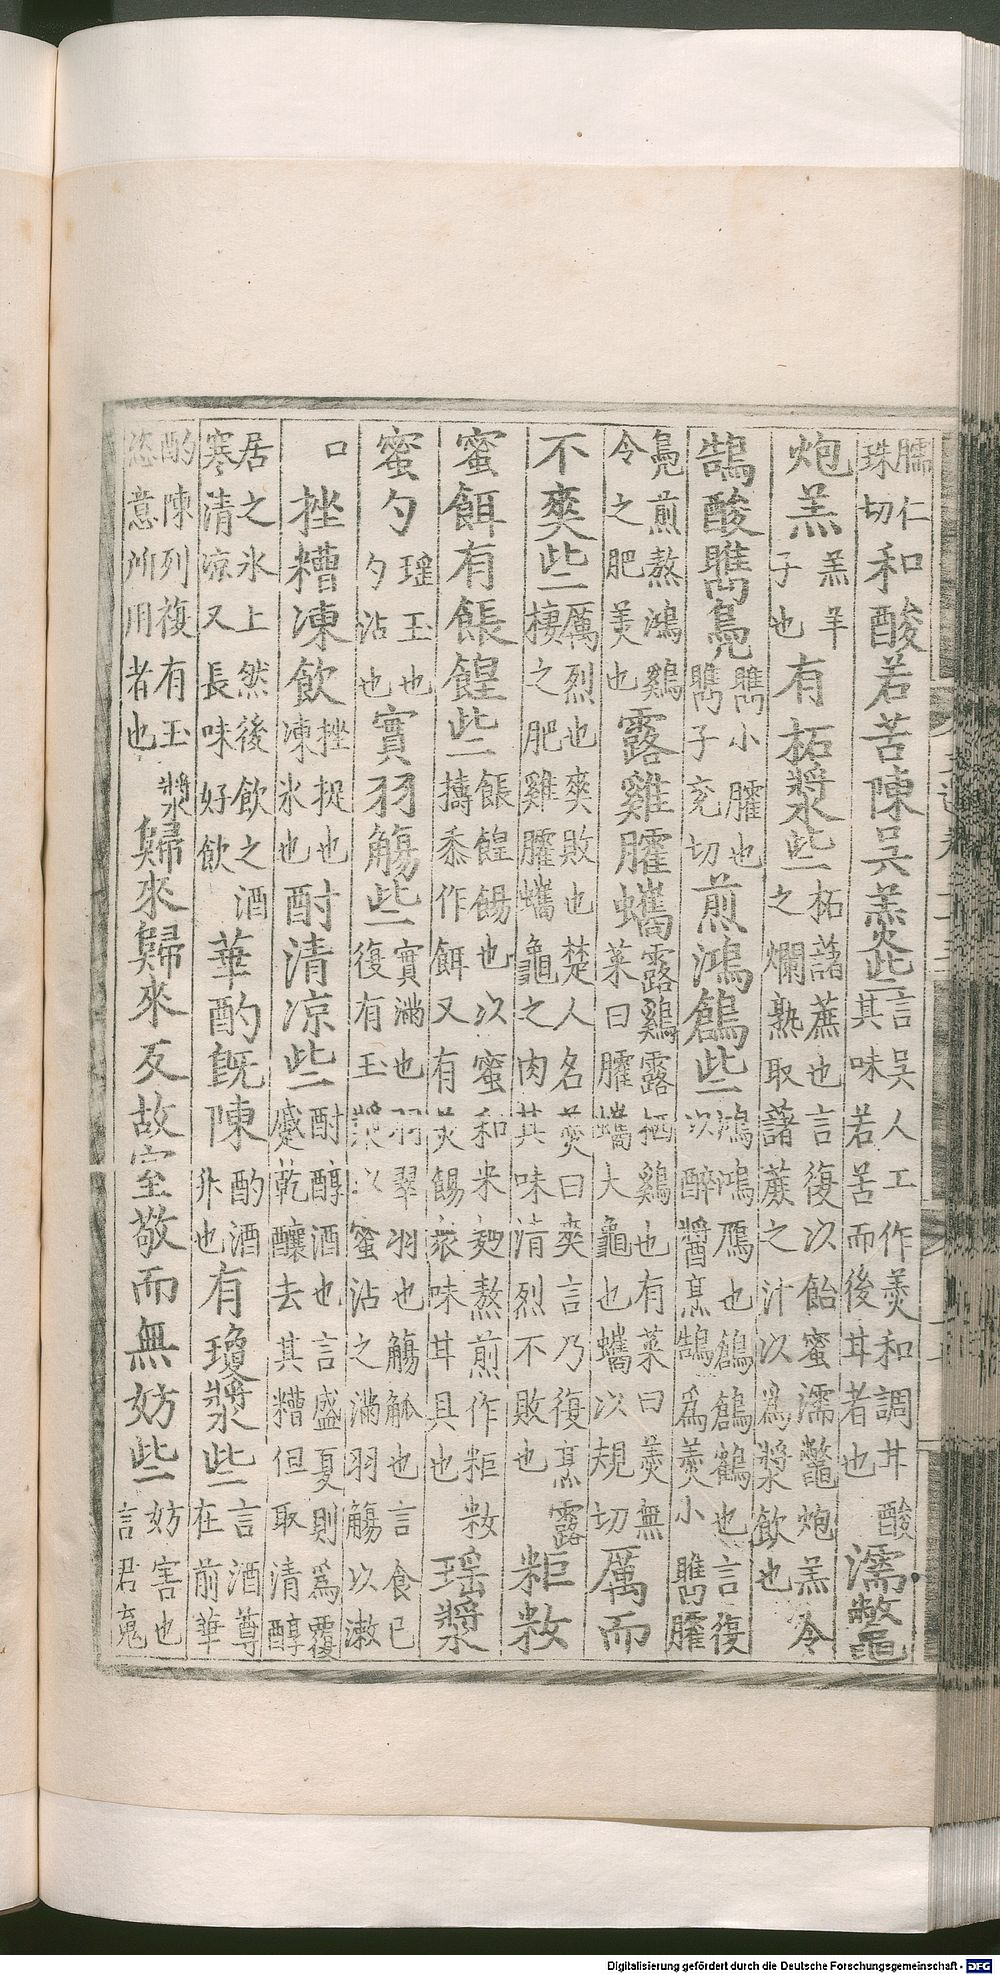 臑仁珠切和酸若苦陳吳羹些言吳人工作羹和調甘酸其味若苦而後甘者也濡鼈
炮羔羔羊子也有柘漿些柘藷蔗也言復以飴蜜濡鼈炮羔令之爛熟取藷蔗之汁以為漿飲也
鵠酸臇鳧臇小臛也臇子兖切煎鴻鶬些鴻鴻鴈也鶬鶬鶴也言復以醉醬烹鵠為羹小臇臛
鳧煎熬鴻鷄令之肥美也露雞臛蠵露鷄露栖鷄也有菜曰羹無菜曰臛蠵大龜也蠵以規切厲而
不爽些厲烈也爽敗也楚人名羹曰爽言乃復烹露棲之肥雞臛蠵龜之肉其味清烈不敗也粔籹
蜜餌有餦餭些餦餭餳也以蜜和米麪熬煎作粔籹擣黍作餌又有美餳衆味甘具也瑤漿
蜜勺瑤玉也勺沾也實羽觴些實滿也羽翠羽也觴觚也言食已復有玉漿以蜜沾之滿羽觴以漱
口挫糟凍飲挫捉也凍氷也酎清凉些酎醇酒也言盛夏則為覆蹙乾釀去其糟但取清醇
居之氷上然後飲之酒寒清凉又長味好飲華酌旣陳酌酒升也有瓊漿些言酒尊在前華
酌陳列複有玉漿恣意所用者也歸來歸來反故室敬而無妨些妨害也言君䰟
Digitalisierung gefördert durch die Deutsche Forschungsgemeinschaft - DFG